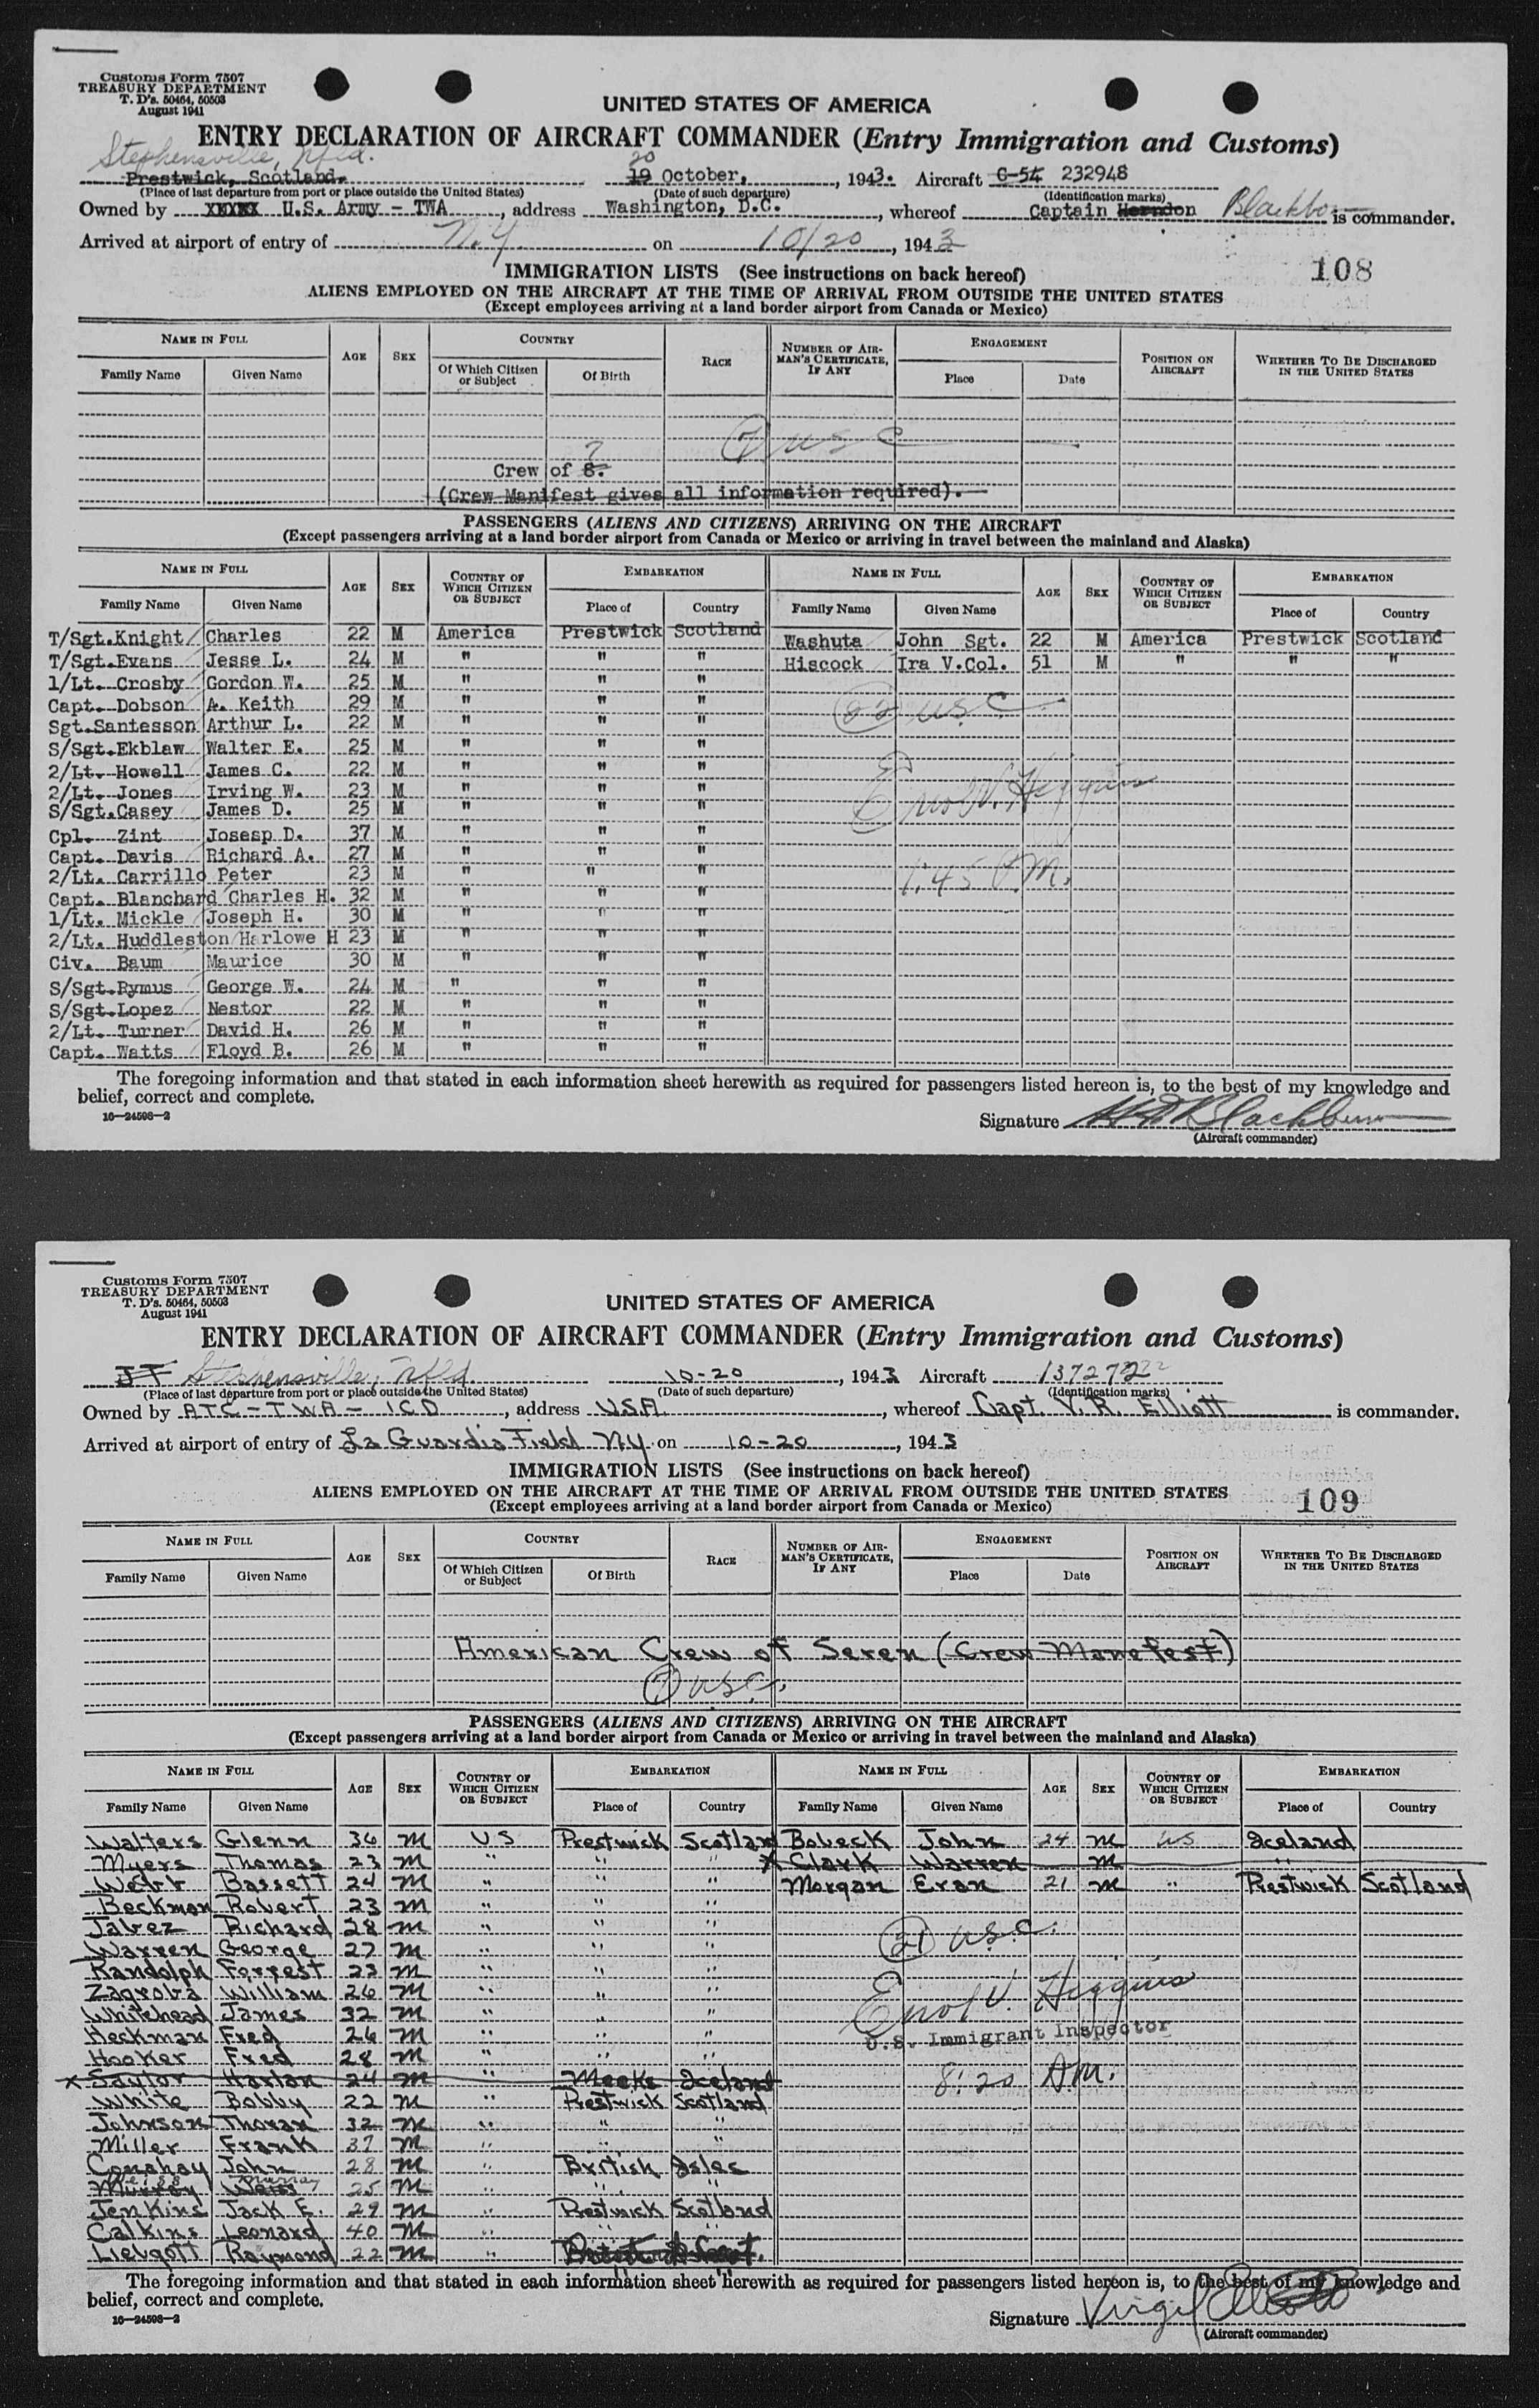 Customs Form 7507
TREASURY DEPARTMENT
T. D's. 50464, 50503
August 1941
UNITED STATES OF AMERICA
ENTRY DECLARATION OF AIRCRAFT COMMANDER (Entry Immigration and Customs)
Stephensville, Nfld.
20
Prestwick, Scotland. 19 October, , 1943. Aircraft C-54 232948
(Place of last departure from port or place outside the United States) (Date of such departure) (Identification marks)
Owned by XXXXX U.S. Army - TWA , address Washington, D.C. , whereof Captain Herndon Blackburn is commander.
Arrived at airport of entry of N.Y. on 10/20 , 1943
IMMIGRATION LISTS (See instructions on back hereof) 108
ALIENS EMPLOYED ON THE AIRCRAFT AT THE TIME OF ARRIVAL FROM OUTSIDE THE UNITED STATES
(Except employees arriving at a land border airport from Canada or Mexico)
NAME IN FULL AGE SEX COUNTRY RACE NUMBER OF AIRMAN'S CERTIFICATE, IF ANY ENGAGEMENT POSITION ON AIRCRAFT WHETHER TO BE DISCHARGED IN THE UNITED STATES
Family Name Given Name Of Which Citizen or Subject Of Birth Place Date
7 USC
7
Crew of 8.
(Crew Manifest gives all information required).
PASSENGERS (ALIENS AND CITIZENS) ARRIVING ON THE AIRCRAFT
(Except passengers arriving at a land border airport from Canada or Mexico or arriving in travel between the mainland and Alaska)
NAME IN FULL AGE SEX COUNTRY OF WHICH CITIZEN OR SUBJECT EMBARKATION NAME IN FULL AGE SEX COUNTRY OF WHICH CITIZEN OR SUBJECT EMBARKATION
Family Name Given Name Place of Country Family Name Given Name Place of Country
T/Sgt.Knight Charles 22 M America Prestwick Scotland Washuta John Sgt. 22 M America Prestwick Scotland
T/Sgt.Evans Jesse L. 24 M " " " Hiscock Ira V.Col. 51 M " " "
1/Lt. Crosby Gordon W. 25 M " " "
Capt. Dobson A. Keith 29 M " " " 22 USC
Sgt.Santesson Arthur L. 22 M " " "
S/Sgt.Ekblaw Walter E. 25 M " " "
2/Lt. Howell James C. 22 M " " "
2/Lt. Jones Irving W. 23 M " " " Enol V. Higgins
S/Sgt.Casey James D. 25 M " " "
Cpl. Zint Josesp D. 37 M " " "
Capt. Davis Richard A. 27 M " " "
2/Lt. Carrillo Peter 23 M " " " 1:45 P.M.
Capt. Blanchard Charles H. 32 M " " "
1/Lt. Mickle Joseph H. 30 M " " "
2/Lt. Huddleston Harlowe H 23 M " " "
Civ. Baum Maurice 30 M " " "
S/Sgt.Rymus George W. 24 M " " "
S/Sgt.Lopez Nestor 22 M " " "
2/Lt. Turner David H. 26 M " " "
Capt. Watts Floyd B. 26 M " " "
The foregoing information and that stated in each information sheet herewith as required for passengers listed hereon is, to the best of my knowledge and
belief, correct and complete.
16—24598-2
Signature Blackburn
(Aircraft commander)
Customs Form 7507
TREASURY DEPARTMENT
T. D's. 50464, 50503
August 1941
UNITED STATES OF AMERICA
ENTRY DECLARATION OF AIRCRAFT COMMANDER (Entry Immigration and Customs)
Stephensville, Nfld. 10-20 , 1943 Aircraft
(Place of last departure from port or place outside the United States) (Date of such departure) (Identification marks)
Owned by ATC-TWA-ICD , address USA , whereof Capt. V. R. Elliott is commander.
Arrived at airport of entry of La Guardia Field NY. on 10-20 , 1943
IMMIGRATION LISTS (See instructions on back hereof)
ALIENS EMPLOYED ON THE AIRCRAFT AT THE TIME OF ARRIVAL FROM OUTSIDE THE UNITED STATES 109
(Except employees arriving at a land border airport from Canada or Mexico)
NAME IN FULL AGE SEX COUNTRY RACE NUMBER OF AIRMAN'S CERTIFICATE, IF ANY ENGAGEMENT POSITION ON AIRCRAFT WHETHER TO BE DISCHARGED IN THE UNITED STATES
Family Name Given Name Of Which Citizen or Subject Of Birth Place Date
American Crew of Seven (Crew Manefest)
7 USC.
PASSENGERS (ALIENS AND CITIZENS) ARRIVING ON THE AIRCRAFT
(Except passengers arriving at a land border airport from Canada or Mexico or arriving in travel between the mainland and Alaska)
NAME IN FULL AGE SEX COUNTRY OF WHICH CITIZEN OR SUBJECT EMBARKATION NAME IN FULL AGE SEX COUNTRY OF WHICH CITIZEN OR SUBJECT EMBARKATION
Family Name Given Name Place of Country Family Name Given Name Place of Country
Walters Glenn 36 M US Prestwick Scotland Bobeck John 24 M US Iceland
Myers Thomas 23 M " " " x Clark Warren M "
Webb Bassett 24 M " " " Morgan Evan 21 M " Prestwick Scotland
Beckman Robert 23 M " " "
Jabez Richard 28 M " " "
Warren George 27 M " " " 21 USC.
Randolph Forrest 23 M " " "
Zagroba William 26 M " " "
Whitehead James 32 M " " " Enol V. Higgins
Heckman Fred 26 M " " " U.S. Immigrant Inspector
Hooker Fred 28 M " " "
x Saylor Harlan 24 M " Meeks Iceland 8:20 A.M.
White Bobby 22 M " Prestwick Scotland
Johnson Thoran 32 M " " "
Miller Frank 37 M " " "
Conahay John 28 M " British Isles
Weiss Murray
Murray Weiss 25 M " " "
Jenkins Jack E. 29 M " Prestwick Scotland
Calkins Leonard 40 M " " "
Lievgott Raymond 22 M "
The foregoing information and that stated in each information sheet herewith as required for passengers listed hereon is, to the best of my knowledge and
belief, correct and complete.
16—24598-2
Signature Virgil Elliott
(Aircraft commander)